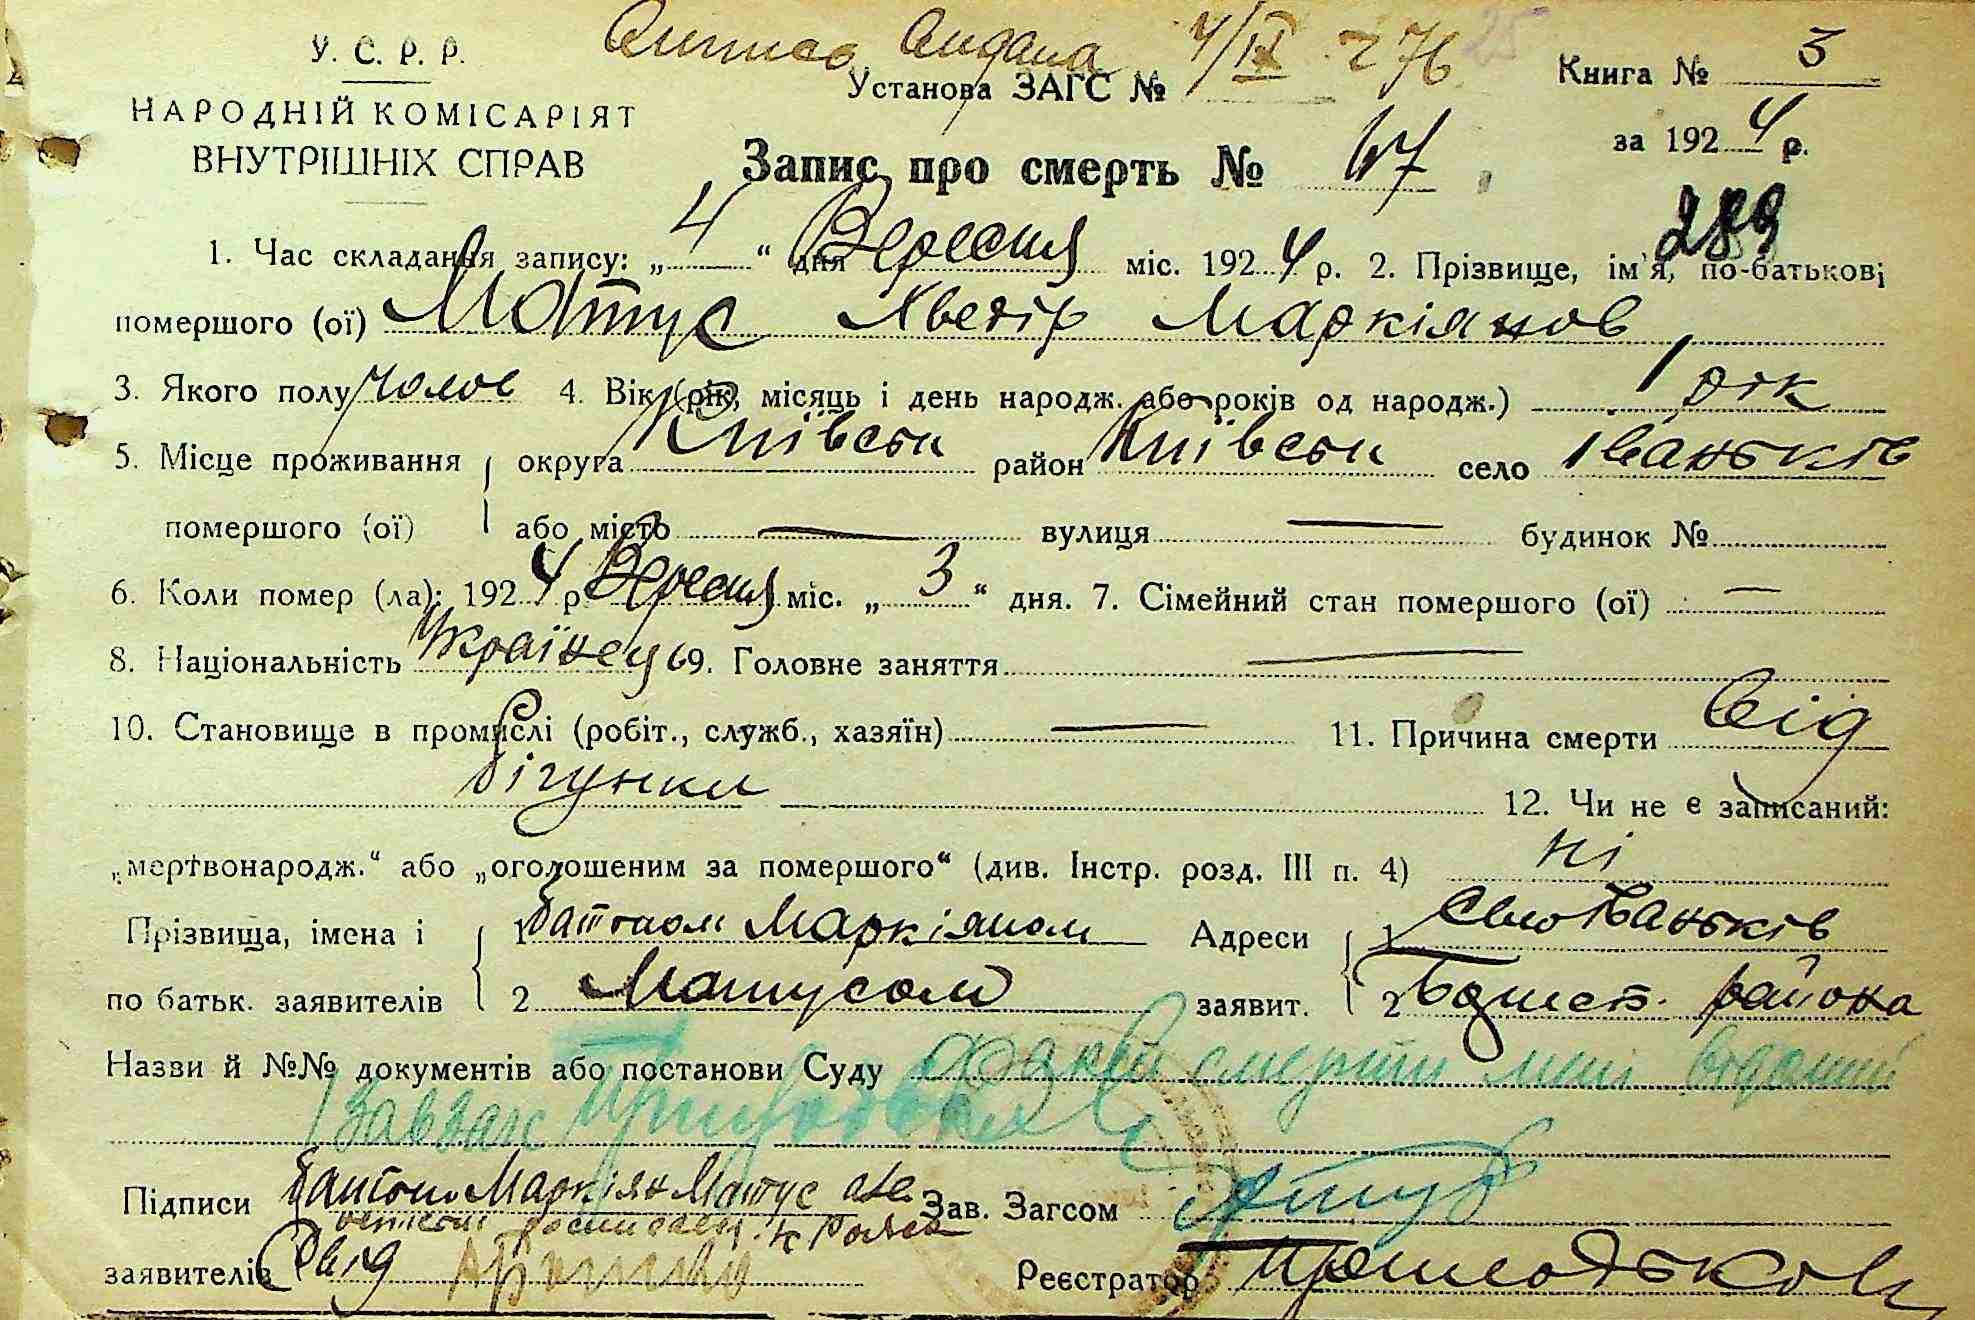 У. С. Р. Р.
НАРОДНІЙ КОМІСАРІЯТ
ВНУТРІШНІХ СПРАВ
Випись видана 4/IX 276 25
Установа ЗАГС №
Книга № 3
за 1924 р.
Запис про смерть № 47
289
1. Час складання запису: „4“ дня Вересня міс. 1924 р. 2. Прізвище, ім'я, по-батькові
помершого (ої) Матус Хведір Маркіянов
3. Якого полу чолов 4. Вік (рік, місяць і день народж. або років од народж.) 1 рік
5. Місце проживання округа Київськ район Київськ село Іваньків
помершого (ої) або місто — вулиця — будинок №
6. Коли помер (ла): 1924 р. Вересня міс. „3“ дня. 7. Сімейний стан помершого (ої) —
8. Національність Українець 9. Головне заняття —
10. Становище в промислі (робіт., служб., хазяїн) — 11. Причина смерти від
бігунки 12. Чи не є записаний:
„мертвонародж.“ або „оголошеним за помершого“ (див. Інстр. розд. III п. 4) ні
Прізвища, імена і 1 батьком Маркіяном Адреси 1 село Іваньків
по батьк. заявителів 2 Матусом заявит. 2 района
Назви й №№ документів або постанови Суду смерти
Підписи Маркіян Матус Зав. Загсом
заявителів Реєстратор